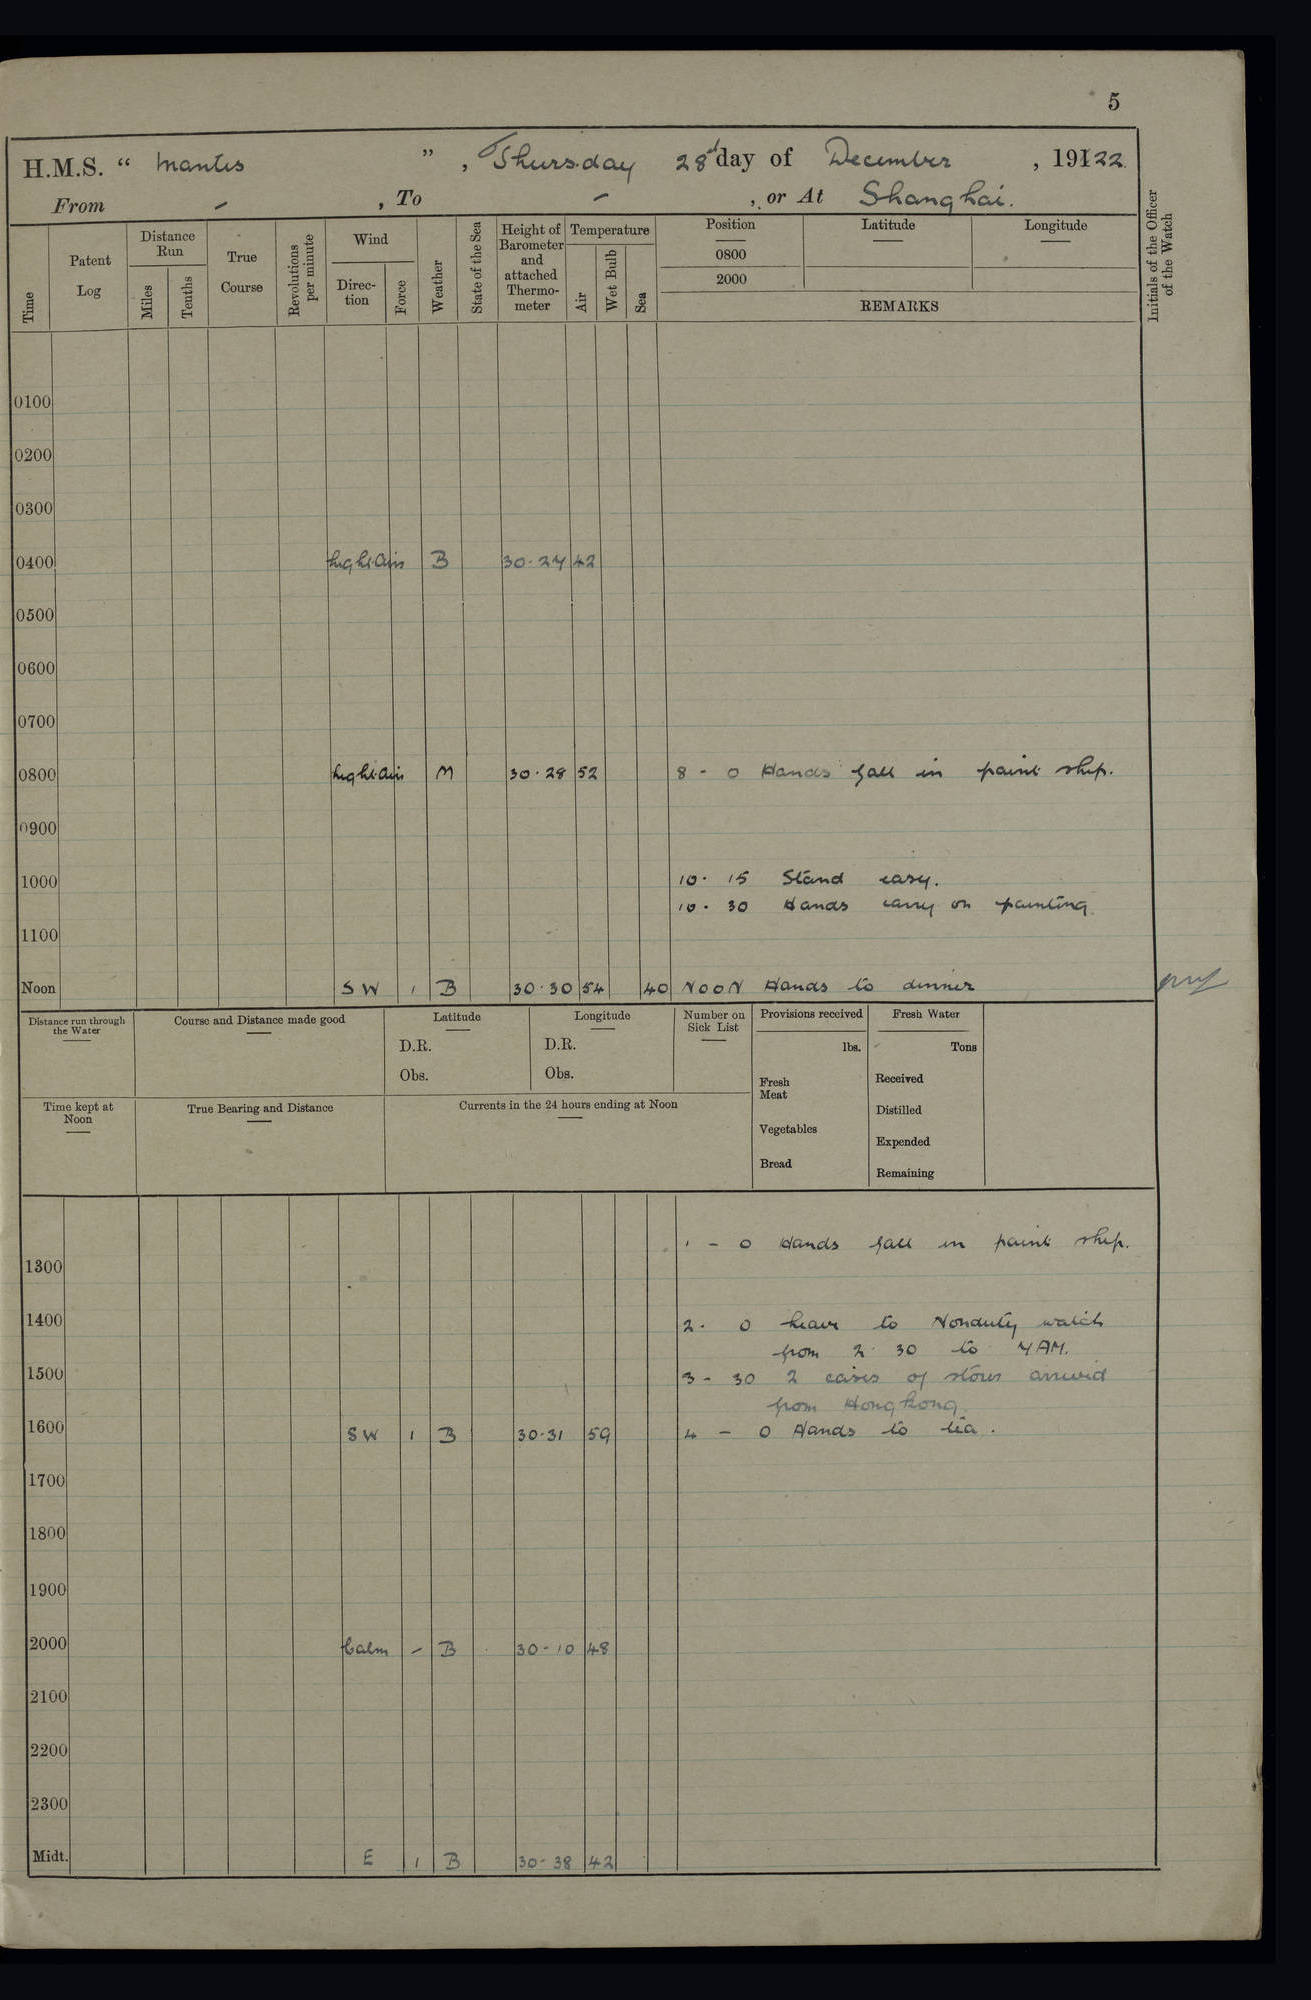 5
H.M.S. “ Mantis ” , Thursday 28th day of December , 19122
From – , To – , or At Shanghai.
Time
Patent Log
Distance Run
Miles
Tenths
True Course
Revolutions per minute
Wind
Direc- tion
Force
Weather
State of the Sea
Height of Barometer and attached Thermo- meter
Temperature
Air
Wet Bulb
Sea
Position
0800
2000
Latitude
Longitude
REMARKS
Initials of the Officer of the Watch
0100
0200
0300
0400 Light Airs B 30·27 42
0500
0600
0700
0800 Light Airs M 30·28 52 8 - 0 Hands fall in paint ship.
0900
1000 10· 15 Stand easy.
10· 30 Hands carry on painting.
1100
Noon SW 1 B 30·30 54 40 NOON Hands to dinner
Distance run through the Water
Course and Distance made good
Latitude
D.R.
Obs.
Longitude
D.R.
Obs.
Number on Sick List
Provisions received
lbs.
Fresh Meat
Vegetables
Bread
Fresh Water
Tons
Received
Distilled
Expended
Remaining
Time kept at Noon
True Bearing and Distance
Currents in the 24 hours ending at Noon
1 - 0 Hands fall in paint ship.
1300
1400 2 · 0 Leave to Nonduty watch
from 2· 30 to 7 AM.
1500 3 - 30 2 cases of stores arrived
from Hongkong.
1600 SW 1 B 30·31 59 4 - 0 Hands to tea.
1700
1800
1900
2000 Calm – B 30·10 48
2100
2200
2300
Midt. E 1 B 30·38 42